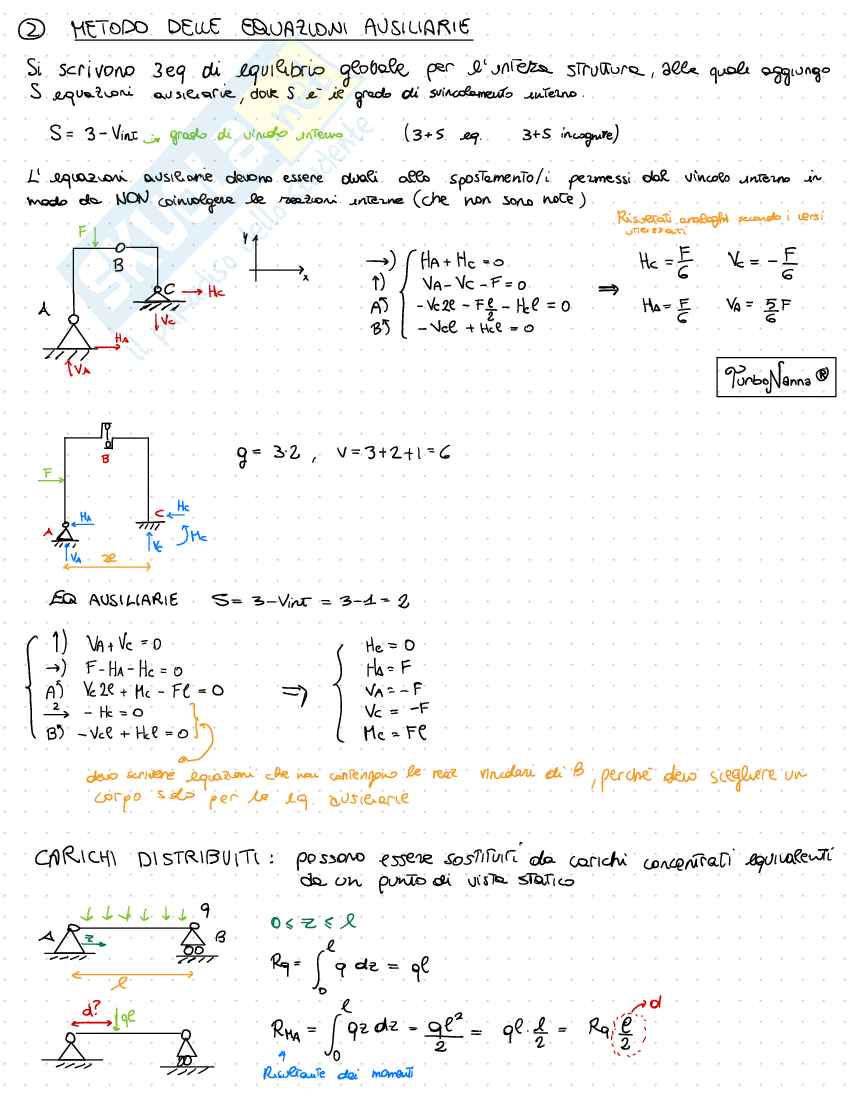 ② METODO DELLE EQUAZIONI AUSILIARIE
Si scrivono 3eq di equilibrio globale per l'intera struttura, alle quale aggiungo
S equazioni ausiliarie, dove S è il grado di svincolamento interno.
S = 3 - Vint → grado di vincolo interno (3+S eq. 3+S incognite)
L'equazioni ausiliarie devono essere duali allo spostamento/i permessi dal vincolo interno in
modo da NON coinvolgere le reazioni interne (che non sono note)
Risultati analoghi secondo i versi
F
B
A
C
HC
VC
HA
VA
Y
x
→) HA + HC = 0
↑) VA - VC - F = 0
A↺) -VC2l - F l/2 - HCl = 0
B↺) -VCl + HCl = 0
⇒
HC = F/6 VC = - F/6
HA = F/6 VA = 5/6 F
TurboNanna ®
g = 3·2 , V = 3+2+1 = 6
B
F
HA
A
VA
2l
C
HC
VC
MC
EQ AUSILIARIE S = 3 - Vint = 3 - 1 = 2
↑) VA + VC = 0
→) F - HA - HC = 0
A↺) VC2l + MC - Fl = 0
2→ - HC = 0
B↺) -VCl + HCl = 0
⇒
HC = 0
HA = F
VA = - F
VC = -F
MC = Fl
devo scrivere equazioni che non contengono le reaz vincolari di B, perché devo scegliere un
corpo solo per le eq. ausiliarie
CARICHI DISTRIBUITI: possono essere sostituiti da carichi concentrati equivalenti
da un punto di vista statico
q
A
z
B
l
0 ≤ z ≤ l
Rq = ∫₀ˡ q dz = ql
d?
ql
RMA = ∫₀ˡ qz dz = ql²/2 = ql · l/2 = Rq l/2 → d
Risultante dei momenti
SKUOLA.net
il paradiso dello studente